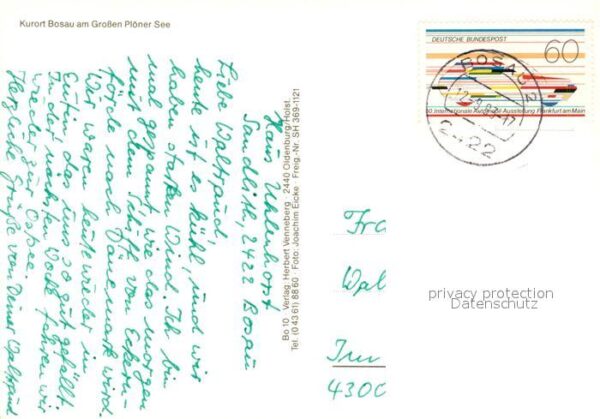 Kurort Bosau am Großen Plöner See
Haus Uhlenhorst
Sandlith, 2422 Bosau
Liebe Waltraud,
heute ist es kühl, und wir
haben starken Wind. Ich bin
mal gespannt, wie das morgen
mit dem Schiff von Eckern-
förde nach Dänemark wird.
Wir waren heute wieder in
Eutin, das uns so gut gefällt.
In der nächsten Woche fahren wir
wieder zur Ostsee.
Herzliche Grüße von Deiner Waltraud
Bo 10 Verlag: Herbert Venneberg 2440 Oldenburg/Holst.
Tel. (0 43 61) 88 60 · Foto: Joachim Eicke · Freig.-Nr. SH 369-1121
DEUTSCHE BUNDESPOST
60
50 Internationale Automobil-Ausstellung Frankfurt am Main
BOSAU 2
2422
Fra
Wal
privacy protection
Datenschutz
Im
4300